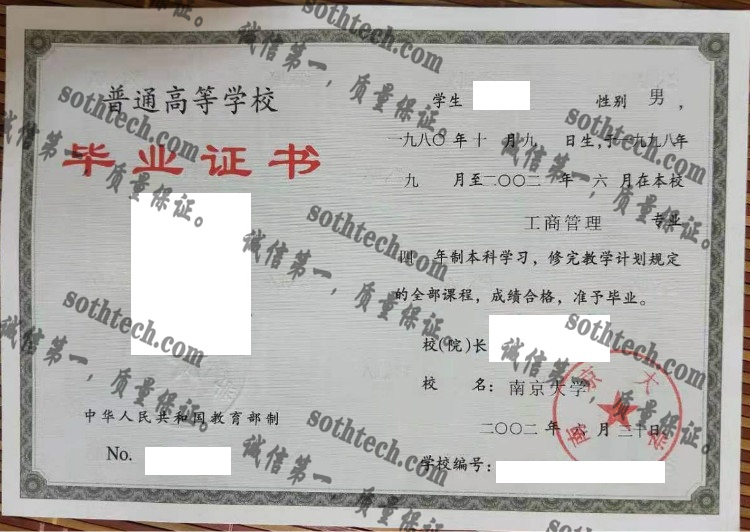 普通高等学校
毕业证书
中华人民共和国教育部制
No.
学生 性别 男，
一九八〇年十月九日生，于一九九八年
九月至二〇〇二年六月在本校
工商管理 专业
四年制本科学习，修完教学计划规定
的全部课程，成绩合格，准予毕业。
校(院)长
校 名：南京大学
二〇〇二年六月三十日
学校编号：
南京大学
sothtech.com
诚信第一，质量保证。
sothtech.com
诚信第一，质量保证。
sothtech.com
诚信第一，质量保证。
sothtech.com
诚信第一，质量保证。
sothtech.com
诚信第一，质量保证。
sothtech.com
诚信第一，质量保证。
sothtech.com
诚信第一，质量保证。
sothtech.com
诚信第一，质量保证。